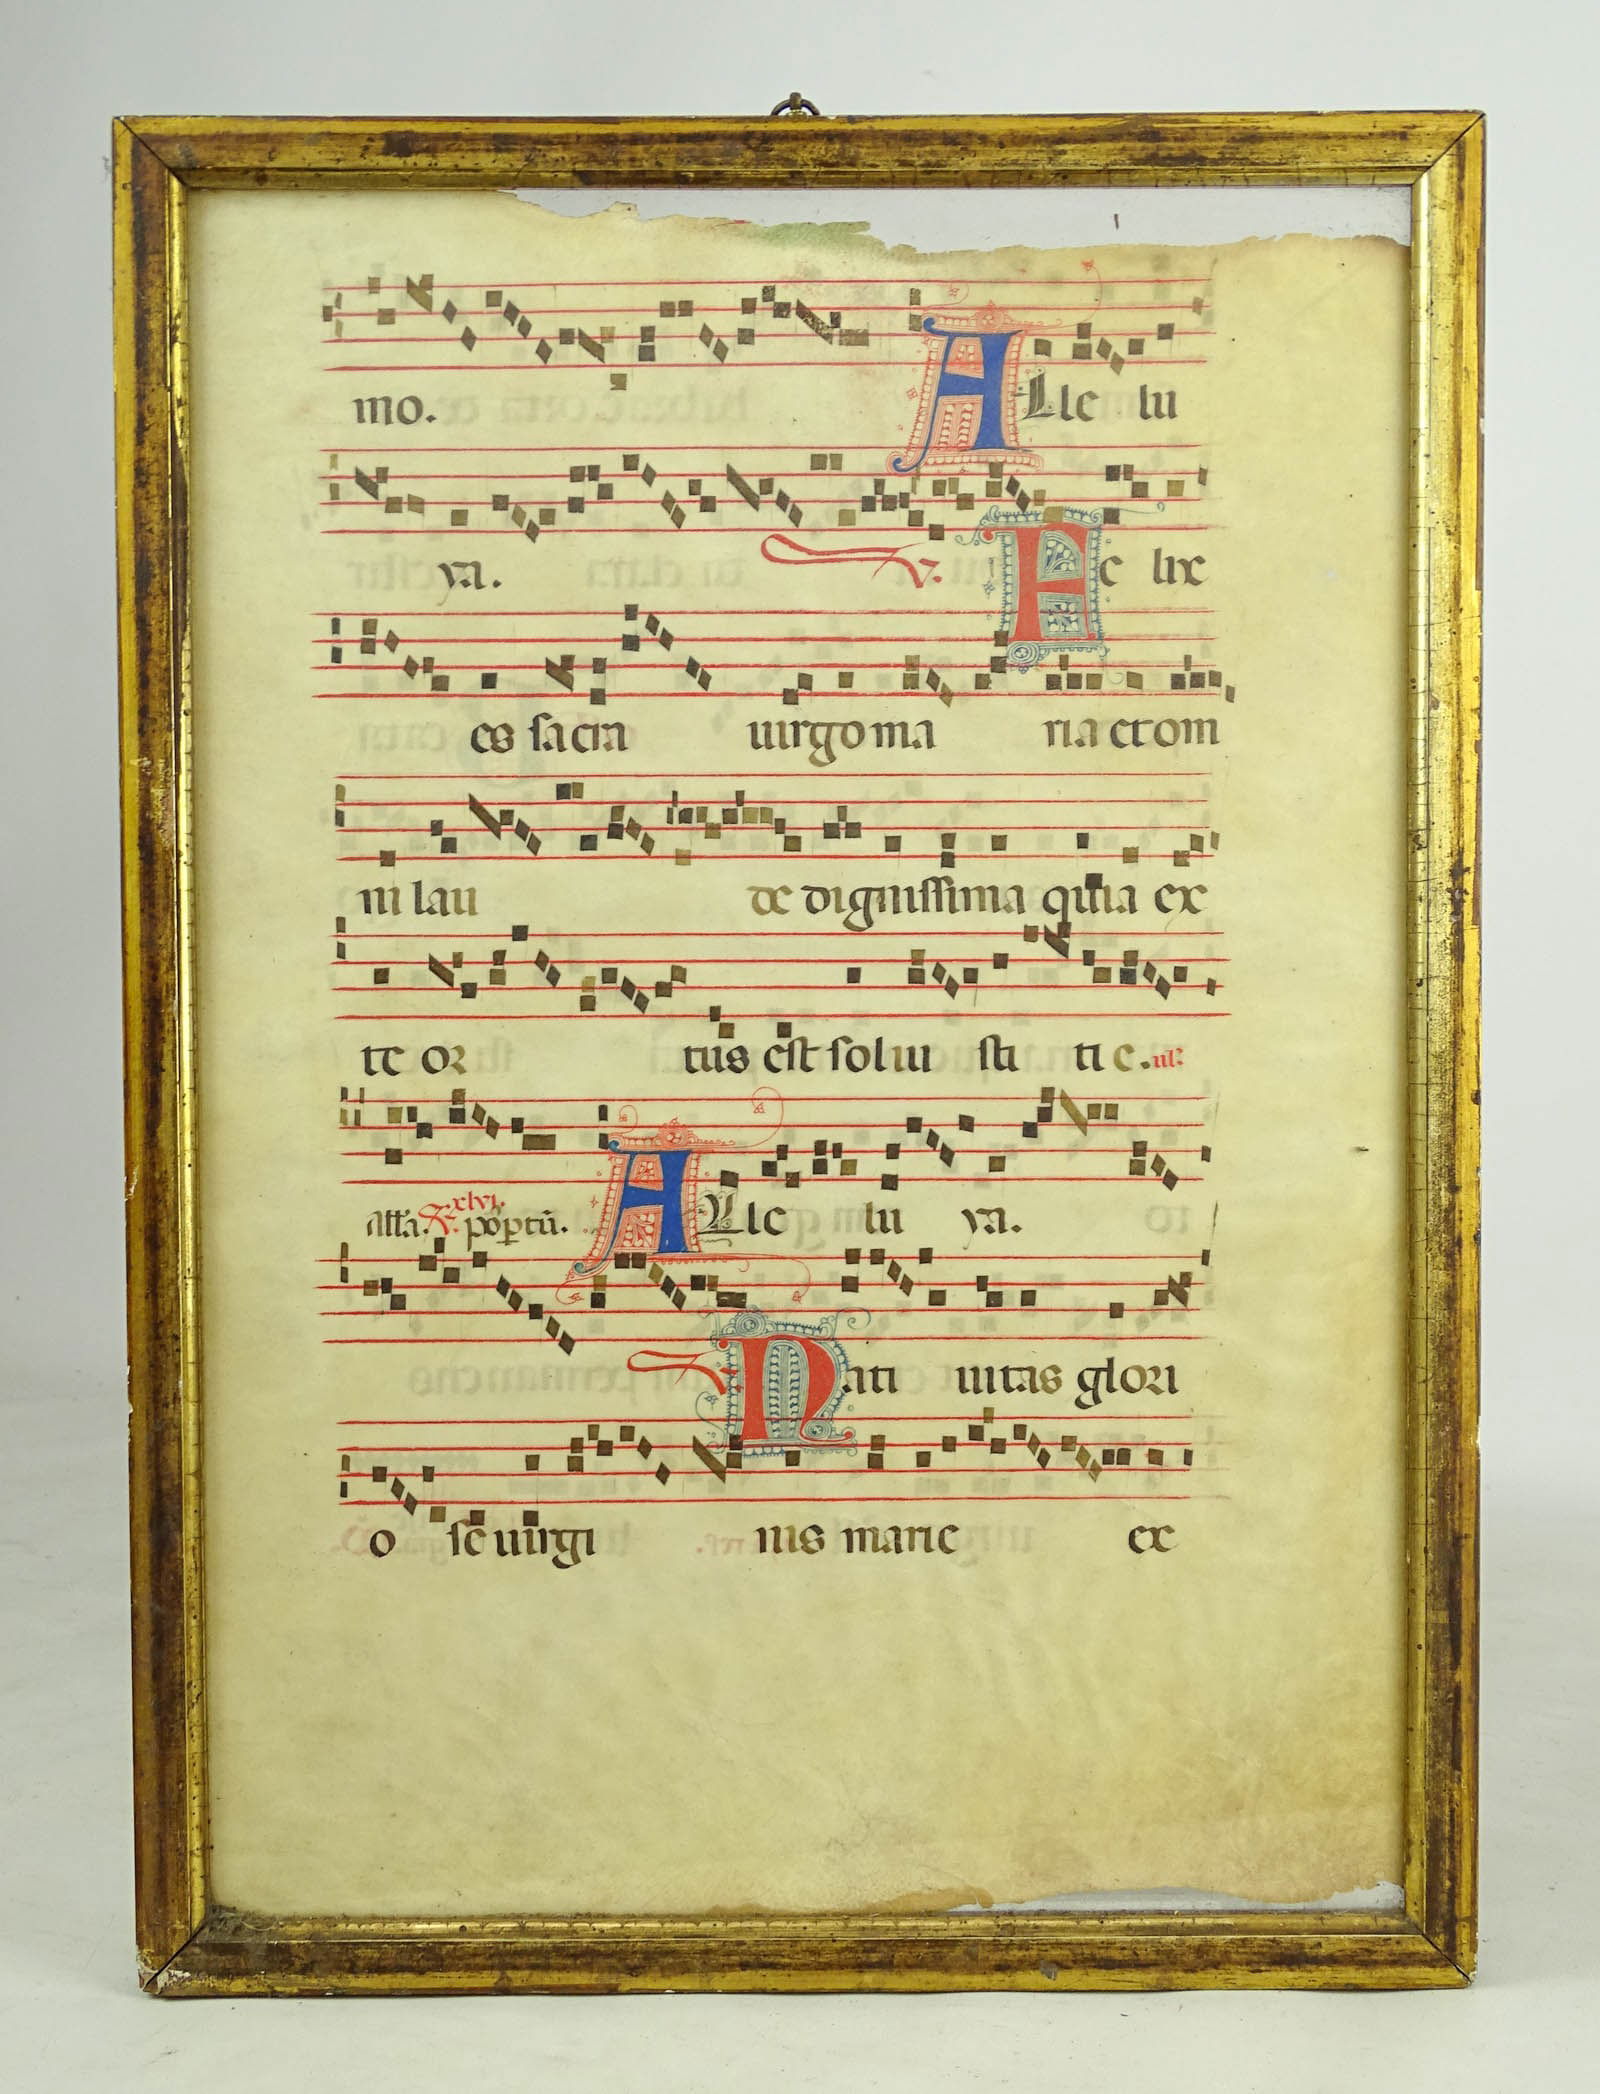 mo. ALle lu
ya. V. Fe lix
es sacra uirgo ma ria et om
ni lau de dignissima quia ex
te or tus est sol iu sti tie.
Alla. ALle lu ya.
V. Nati uitas glori
o se uirgi nis marie ex